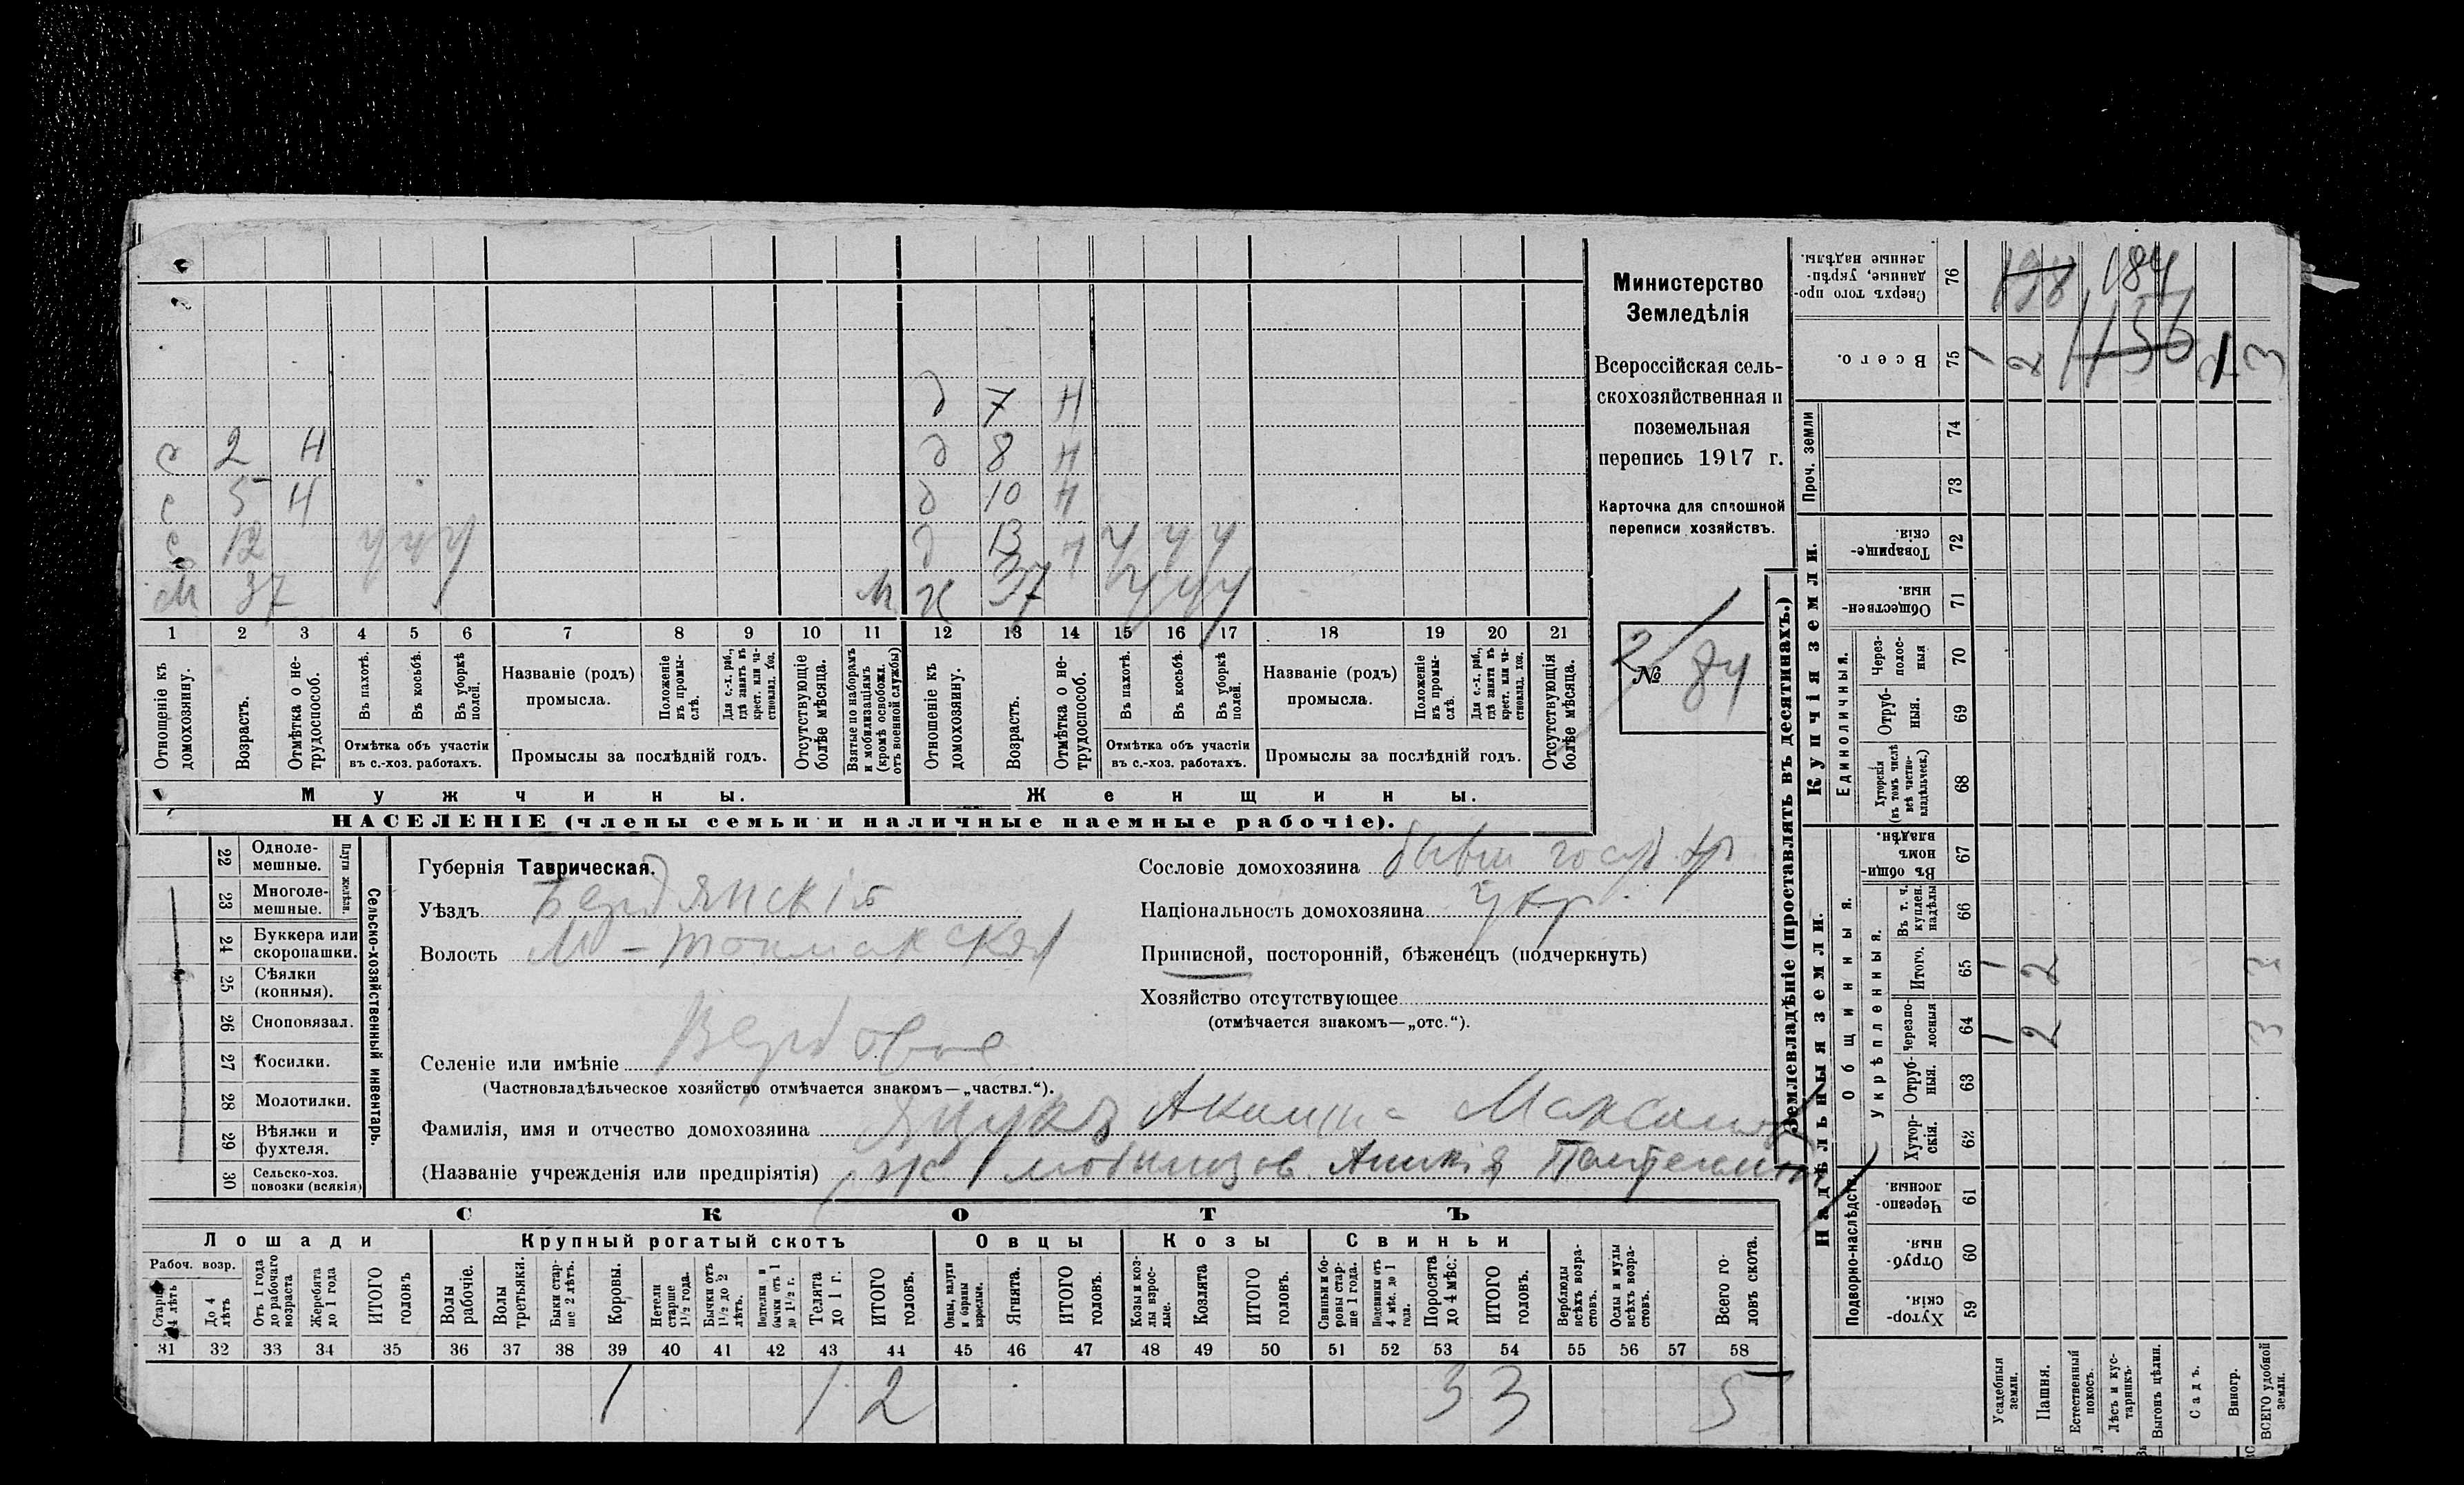 Министерство
Земледѣлія
Всероссійская сель-
скохозяйственная и
поземельная
перепись 1917 г.
Карточка для сплошной
переписи хозяйствъ.
№ 2/84
д 7 Н
с 2 Н д 8 Н
с 5 Н д 10 Н
с 12 у у у д 13 Н у у у
М 37 М Ж 37 у у у
1 2 3 4 5 6 7 8 9 10 11 12 13 14 15 16 17 18 19 20 21
Отношеніе къ домохозяину.
Возрастъ.
Отмѣтка о не-трудоспособ.
Въ пахотѣ.
Въ косьбѣ.
Въ уборкѣ полей.
Отмѣтка объ участіи въ с.-хоз. работахъ.
Названіе (родъ) промысла.
Положеніе въ промы-слѣ.
Для с.-х. раб., гдѣ занятъ въ крест. или ча-стновлад. хоз.
Промыслы за послѣдній годъ.
Отсутствующіе болѣе мѣсяца.
Взятые по наборамъ и мобилизаціямъ (кромѣ освобожд. отъ военной службы)
Отношеніе къ домохозяину.
Возрастъ.
Отмѣтка о не-трудоспособ.
Въ пахотѣ.
Въ косьбѣ.
Въ уборкѣ полей.
Отмѣтка объ участіи въ с.-хоз. работахъ.
Названіе (родъ) промысла.
Положеніе въ промы-слѣ.
Для с.-х. раб., гдѣ занята въ крест. или ча-стновлад. хоз.
Промыслы за послѣдній годъ.
Отсутствующія болѣе мѣсяца.
Мужчины. Женщины.
НАСЕЛЕНІЕ (члены семьи и наличные наемные рабочіе).
22 Одноле-мешные.
23 Многоле-мешные.
Плуги желѣз.
24 Буккера или скоропашки.
25 Сѣялки (конныя).
26 Сноповязал.
27 Косилки.
28 Молотилки.
29 Вѣялки и фухтеля.
30 Сельско-хоз. повозки (всякія)
Сельско-хозяйственный инвентарь.
Губернія Таврическая.
Уѣздъ Бердянскій
Волость М-Токмакская
Селеніе или имѣніе Вербовое
(Частновладѣльческое хозяйство отмѣчается знакомъ—„частвл.“).
Сословіе домохозяина бывш госуд кр
Національность домохозяина укр.
Приписной, посторонній, бѣженецъ (подчеркнуть)
Хозяйство отсутствующее
(отмѣчается знакомъ—„отс.“).
Фамилія, имя и отчество домохозяина Яцукъ Акимъ Максимов
(Названіе учрежденія или предпріятія)
СКОТЪ
Лошади Крупный рогатый скотъ Овцы Козы Свиньи
Рабоч. возр.
Старше 4 лѣтъ
До 4 лѣтъ
Отъ 1 года до рабочаго возраста
Жеребята до 1 года
ИТОГО головъ
Волы рабочіе.
Волы третьяки.
Быки стар-ше 2 лѣтъ.
Коровы.
Нетели старше 1½ года.
Бычки отъ 1½ до 2 лѣтъ.
Подтелки и бычки отъ 1 до 1½ г.
Телята до 1 г.
ИТОГО головъ.
Овцы, валухи и бараны взрослые.
Ягнята.
ИТОГО головъ.
Козы и коз-лы взрос-лые.
Козлята
ИТОГО головъ.
Свиньи и бо-ровы стар-ше 1 года.
Подсвинки отъ 4 мѣс. до 1 года.
Поросята до 4 мѣс.
ИТОГО головъ.
Верблюды всѣхъ возра-стовъ.
Ослы и мулы всѣхъ возра-стовъ.
Всего го-ловъ скота.
31 32 33 34 35 36 37 38 39 40 41 42 43 44 45 46 47 48 49 50 51 52 53 54 55 56 57 58
1 1 2 3 3 5
Землевладѣніе (проставлять въ десятинахъ.)
Купчія земли.
Надѣльныя земли.
Сверхъ того про-данные, укрѣп-ленные надѣлы. 76 184
Всего. 75 1 2 3
Проч. земли 74 73
Товарище-скія. 72
Обществен-ныя. 71
Единоличныя.
Через-полос-ныя 70
Отруб-ныя. 69
Хуторскія (въ томъ числѣ всѣ частно-владѣльческ.) 68
Общинныя.
Въ общин-номъ владѣн. 67
Укрѣпленныя.
Въ т. ч. куплен. надѣлы 66
Итого. 65 1 2
Черезпо-лосныя 64 1 2 3
Отруб-ныя. 63
Хутор-скія. 62
Подворно-наслѣдств.
Черезпо-лосныя. 61
Отруб-ныя. 60
Хутор-скія. 59
Усадебныя земли.
Пашня.
Естественный покосъ.
Лѣсъ и кус-тарникъ.
Выгонъ цѣлин.
Садъ.
Виногр.
ВСЕГО удобной земли.